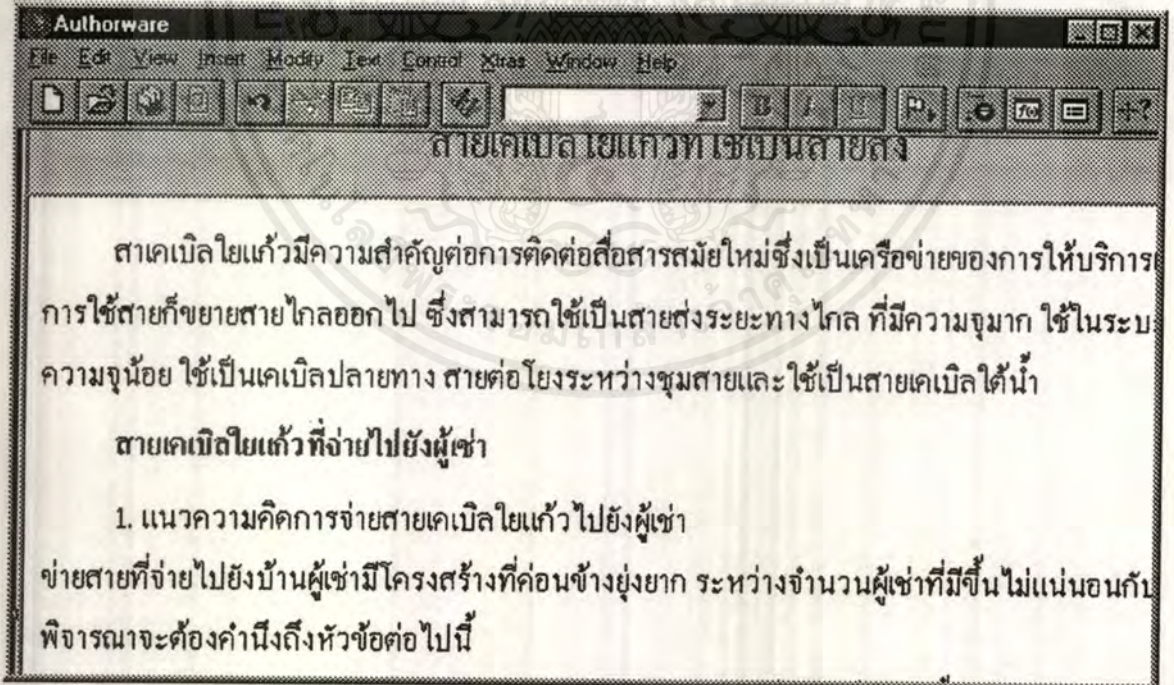 Authorware
File Edit View Insert Modify Text Control Xtras Window Help
สายเคเบิลใยแก้วที่ใช้เป็นสายส่ง
สาเคเบิลใยแก้วมีความสำคัญต่อการติดต่อสื่อสารสมัยใหม่ซึ่งเป็นเครือข่ายของการให้บริการ
การใช้สายก็ขยายสายไกลออกไป ซึ่งสามารถใช้เป็นสายส่งระยะทางไกล ที่มีความจุมาก ใช้ในระบ
ความจุน้อย ใช้เป็นเคเบิลปลายทาง สายต่อโยงระหว่างชุมสายและใช้เป็นสายเคเบิลใต้น้ำ
สายเคเบิลใยแก้วที่จ่ายไปยังผู้เช่า
1. แนวความคิดการจ่ายสายเคเบิลใยแก้วไปยังผู้เช่า
ข่ายสายที่จ่ายไปยังบ้านผู้เช่ามีโครงสร้างที่ค่อนข้างยุ่งยาก ระหว่างจำนวนผู้เช่าที่มีขึ้นไม่แน่นอนกับ
พิจารณาจะต้องคำนึงถึงหัวข้อต่อไปนี้